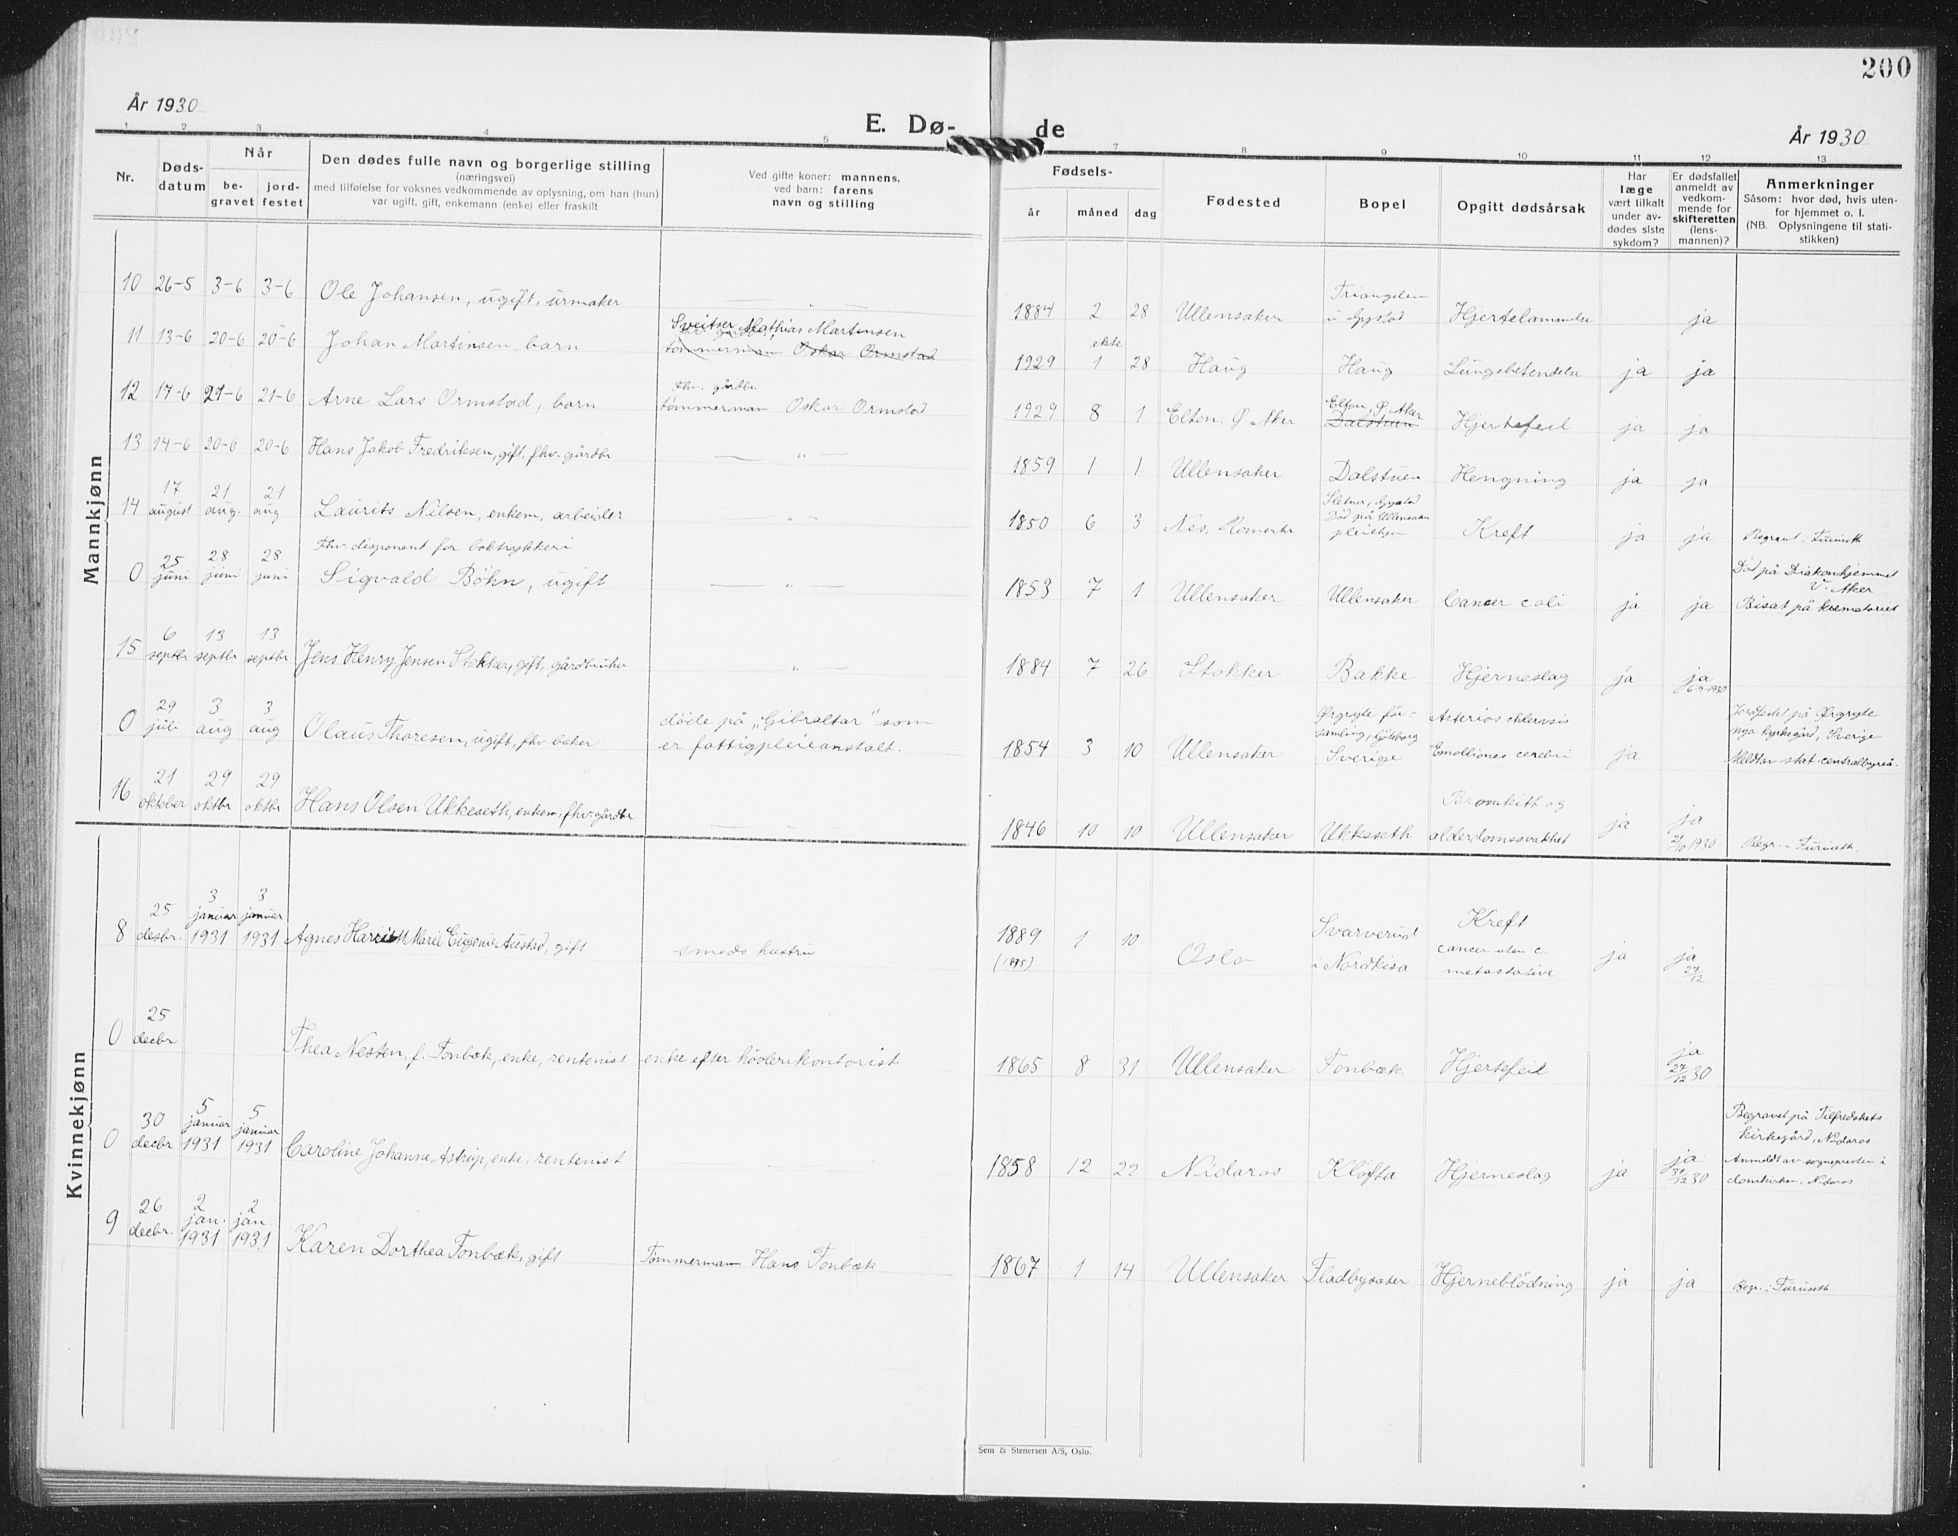 200
År 1930
E. Dø-
de
År 1930
1 2 3 4 5 7 8 9 10 11 12 13
Nr.
Døds-
datum
Når
be-
gravet
jord-
festet
Den dødes fulle navn og borgerlige stilling
(næringsvei)
med tilføielse for voksnes vedkommende av oplysning, om han (hun)
var ugift, gift, enkemann (enke) eller fraskilt
Ved gifte koner: mannens,
ved barn: farens
navn og stilling
Fødsels-
år måned dag
Fødested
Bopel
Opgitt dødsårsak
Har
læge
vært tilkalt
under av-
dødes siste
sykdom?
Er dødsfallet
anmeldt av
vedkom-
mende for
skifteretten
(lens-
mannen)?
Anmerkninger
Såsom: hvor død, hvis uten-
for hjemmet o. l.
(NB. Oplysningene til stati-
stikken)
Mannkjønn
10 26-5 3-6 3-6 Ole Johansen, ugift, urmaker — " —
1884 2 28 Ullensaker Hjertelammelse ja
11 13-6 20-6 20-6 Johan Martinsen, barn
Sveitser Mathias Martinsen
tømmermann Oskar Ormstad
ekte
1929 1 28 Haug Haug Lungebetendelse ja ja
12 17-6 21-6 21-6 Arne Lars Ormstad, barn
Fhv. gårdbr.
tømmermann Oskar Ormstad
1929 8 1 Elton, Ø. Aker
Elton, Ø. Aker
Dalstuen
Hjertefeil ja ja
13 14-6 20-6 20-6 Hans Jakob Fredriksen, gift, fhv. gårdbr — " —
1859 1 1 Ullensaker Dalstuen Hengning ja ja
14 17 august 21 aug. 21 aug Laurits Nilsen, enkem, arbeider — " —
1850 6 3 Nes, Romerike
Død på Ullensaker
pleiehjem
Kreft ja ja Begravet Furuseth
Fhv. disponent for boktrykkeri
0 25 juni 28 juni 28 juni Sigvald Böhn, ugift — " —
1853 7 1 Ullensaker Ullensaker Cancer coli ja ja
Død på Diakonhjemmet
V. Aker
Bisat på krematoriet
15 6 septbr 13 septbr 13 septbr Jens Henry Jensen Stokker, gift, gårdbruker — " —
1884 7 26 Stokker Bakke Hjerneslag ja ja
6-9-1930
0 29 juli 3 aug 3 aug Olaus Thoresen, ugift, fhv. baker
døde på „Gibraltar" som
er fattigpleieanstalt.
1854 3 10 Ullensaker
Ørgryte för-
samling, Göteborg
Sverige
Arterios clerosis
Emolliones cerebri
ja
Jordfestet på Ørgryte
nya kyrkogård, Sverige
Meldt av stat. centralbyrå.
16 21 oktober 29 oktbr 29 oktbr Hans Olsen Ukkeseth, enkem, fhv. gårdbr
1846 10 10 Ullensaker Ukkeseth
Bronkitt og
alderdomssvakhet
ja ja
21/10 1930
Begr. - Furuseth.
Kvinnekjønn
8 25 desbr. 3 januar 1931 3 januar 1931 Agnes Harrieth Marie Eugenie Austad, gift smeds hustru
1889 (1895) 1 10 Oslo
Svarverud
i Nordkisa
Kreft
cancer uteri c.
metastative
ja ja
27/12
0 25 decbr Thea Nesten, f. Tonbæk, enke, rentenist enke efter hövlerikontorist
1865 8 31 Ullensaker Tonbæk. Hjertefeil ja
27/12 30
0 30 decbr 5 januar 1931 5 januar 1931 Caroline Johanne Astrup, enke, rentenist
1858 12 22 Nidaros Kløfta Hjerneslag ja ja
31/12 30
Begravet på Tilfredshets
kirkegård, Nidaros
Anmeldt av sogneprest en i
domkirken, Nidaros
9 26 decbr. 2 jan. 1931 2 jan. 1931 Karen Dorthea Tonbæk, gift Tømmermann Hans Tonbæk
1867 1 14 Ullensaker Fladbysæter Hjerneblödning ja ja Begr. i Furuseth
Sem & Stenersen A/S, Oslo.